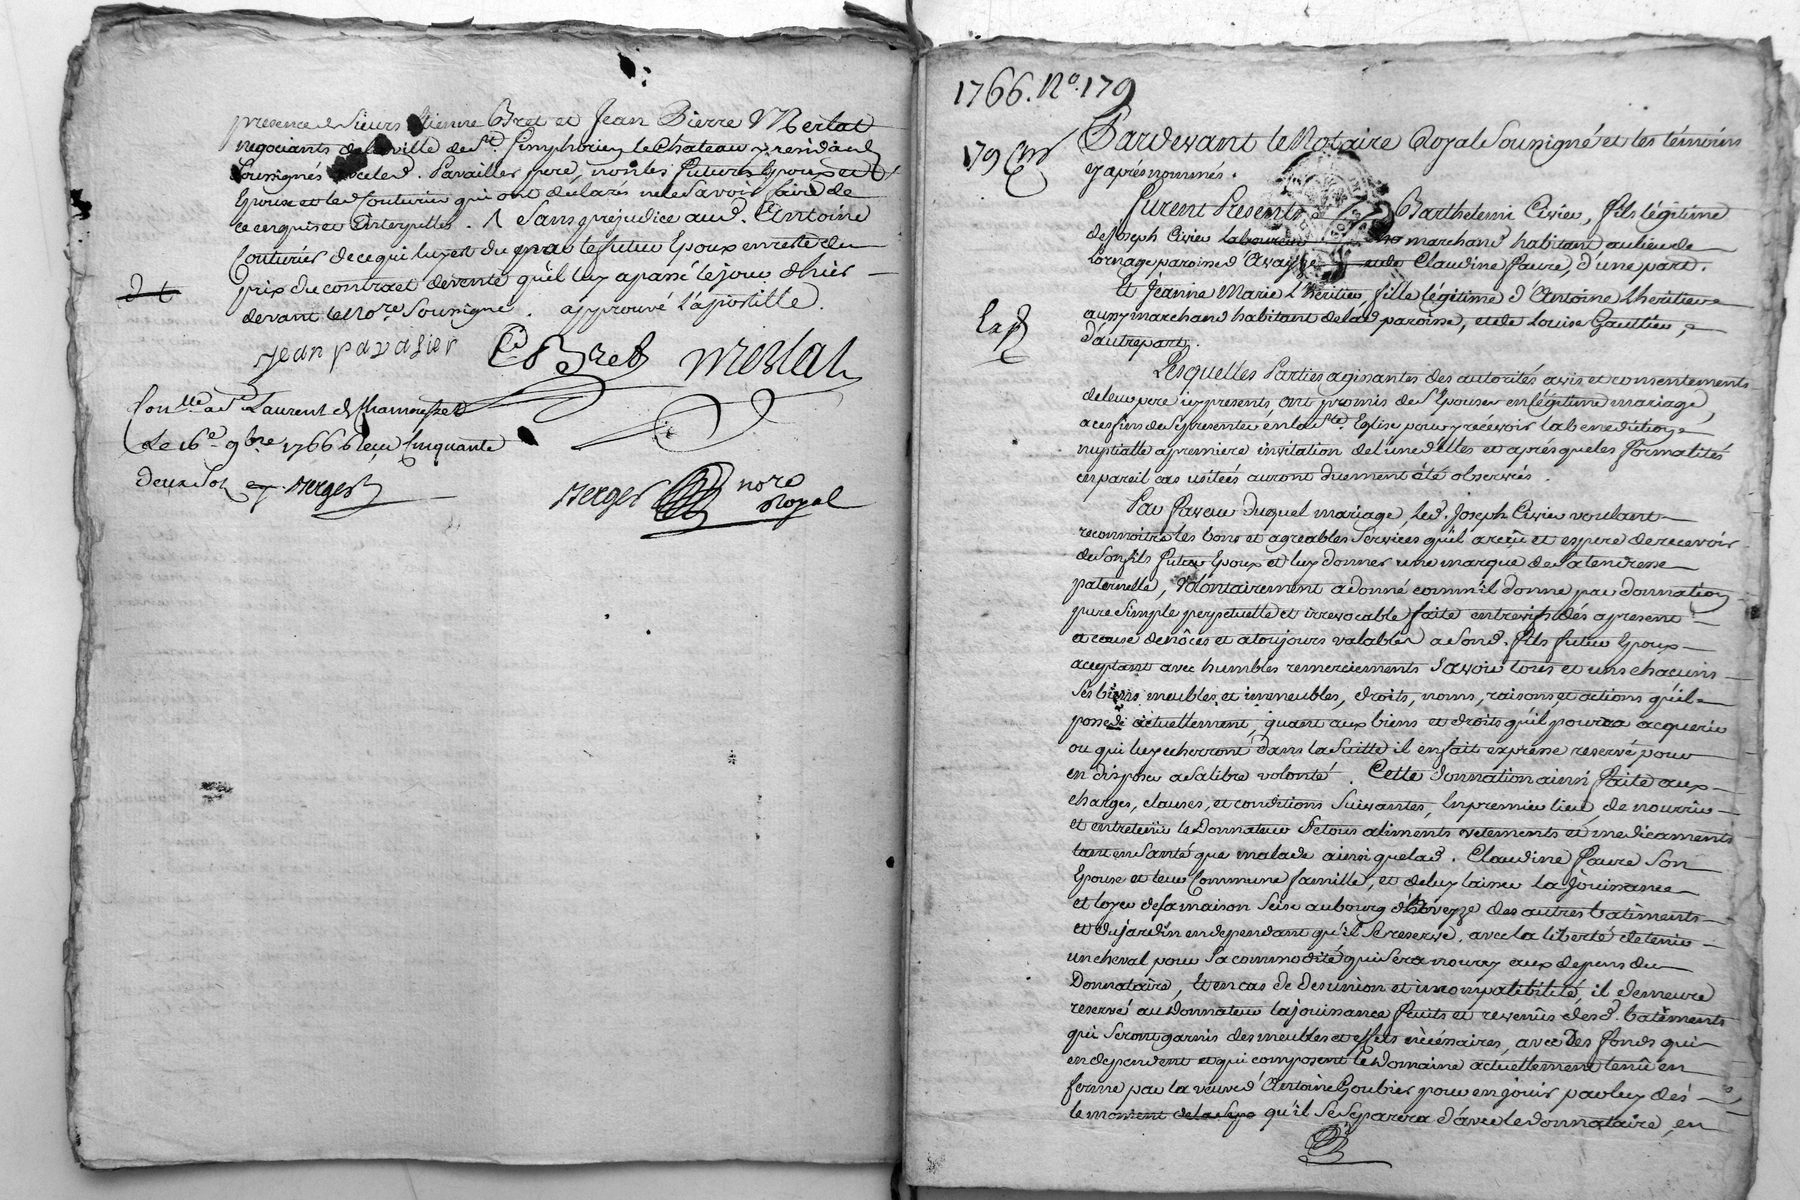 presence de Sieurs Etienne Bret et Jean Pierre Merlat
negociants de la ville de St. Simphorien le Chateau y residants
Soussignés avec led. Pavailler pere, non les futurs Epoux et
Epouse et led Couturier qui ont declarés ne le Savoir faire de
ce enquis et Interpellés. Sans préjudice aud. Antoine
Couturier de ce qui luy est du par le futur Epoux en reste du
prix du contract de vente qu'il luy a passé le jour d'hier
devant le Nore Soussigné. approuvé l'apostille.
Jean pavalier
C. Bret Merlat
Conllé a St Laurent de Chamousset
Le 16e 9bre 1766 Reçu Cinquante
Deux Sols Berger
Berger nore
Royal
1766. No. 179
179
Pardevant le Notaire Royal Soussigné et les témoins
y aprés nommés.
Furent Presents Barthelemi Civier, fils légitime
de Joseph Civier marchand habitant au lieu de
Lornage paroisse d'Avaize et de Claudine Favre, d'une part.
Et Jeanne Marie L'héritier, fille légitime d'Antoine Lheritier
aussy marchand habitant de lad paroisse, et de Louise Gaultier,
d'autre part.
Lesquelles Parties agissantes des autorités avis et consentements
de leur pere icy presents, ont promis de S'Epouser en légitime mariage,
a ces fins de Se presenter en la Ste. Eglise pour y recevoir la benediction
nuptialle a premiere invitation de l'une d'elles et aprés que les formalités
en pareil cas usitées auront duement été observés.
En faveur duquel mariage, led. Joseph Civier voulant
reconnoitre les bons et agreables Services qu'il a reçu et espere de recevoir
de Son fils futur Epoux et luy donner une marque de Sa tendresse
paternelle, Volontairement a donné comm'il donne par donnation
pure Simple perpetuelle et irrevocable faite entrevifs dés apresent
a cause de nôces et a toujours valable a Sond. fils futur Epoux
acceptant avec humbles remerciements Savoir tous et uns chacuns
Ses biens meubles et immeubles, droits, noms, raisons et actions qu'il
possede actuellement, quant aux biens et droits qu'il pourra acquerir
ou qui luy echerront dans la Suitte il en fait expresse reserve pour
en disposer a Sa libre volonté. Cette donnation ainsi faite aux
charges, clauses, et conditions Suivantes, En premier lieu, de nourrir
et entretenir le Donnateur de tous aliments vetements et medicaments
tant en Santé que malade ainsi que lad. Claudine Favre Son
Epouse et leur Commune famille, et de luy laisser la jouissance
et loyer de Sa maison Scise au bourg d'Aveyze des autres batiments
et du jardin en dependant qu'il Se reserve, avec la liberté de tenir
un cheval pour Sa commodité qui Sera nourry aux depens du
Donnataire, Et en cas de desunion et incompatibilité, il demeure
reservé au Donnateur la jouissance fruits et revenûs desd. batiments
qui Seront garnis des meubles et effets nécéssaires, avec Des fonds qui
en dependent et qui composent le Domaine actuellement tenû en
ferme par la veuve d'Antoine Goubier pour en jouir par luy dés
le moment qu'il Se Separera d'avec le donnataire, en